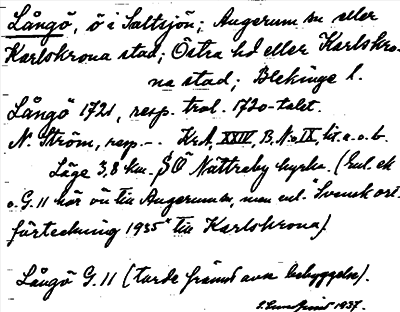 Långö, ö i Saltsjön; Augerum sn eller
Karlskrona stad; Östra hd eller Karlskro-
na stad; Blekinge l.
Långö 1721, resp. trol. 1720-talet.
N. Ström, resp. -- KrA, XXIV, B. No IX, lit. a. o. b.
Läge 3,8 km. SÖ Nättraby kyrka. (Enl. ek
o. G. 11 hör ön till Augerum sn, men enl. "Svensk ort-
förteckning 1935" till Karlskrona)
Långö G. 11 (torde främst avse bebyggelse).
1937.